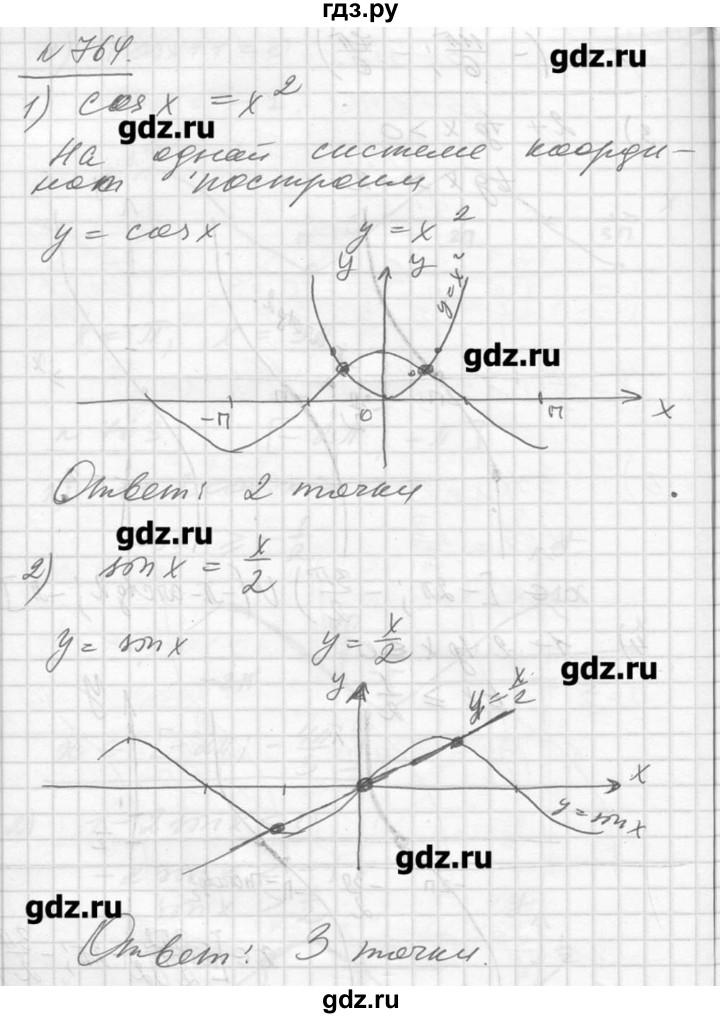 гдз.ру
N 764.
gdz.ru
1) cos x = x²
gdz.ru
На одной системе коорди-
нат построим
y = cos x y = x²
y y y = x²
gdz.ru
-П 0 П x
Ответ: 2 точки
gdz.ru
2) sin x = x/2
y = sin x y = x/2
gdz.ru
y y = x/2
x
y = sin x
gdz.ru
gdz.ru
Ответ: 3 точки.
gdz.ru